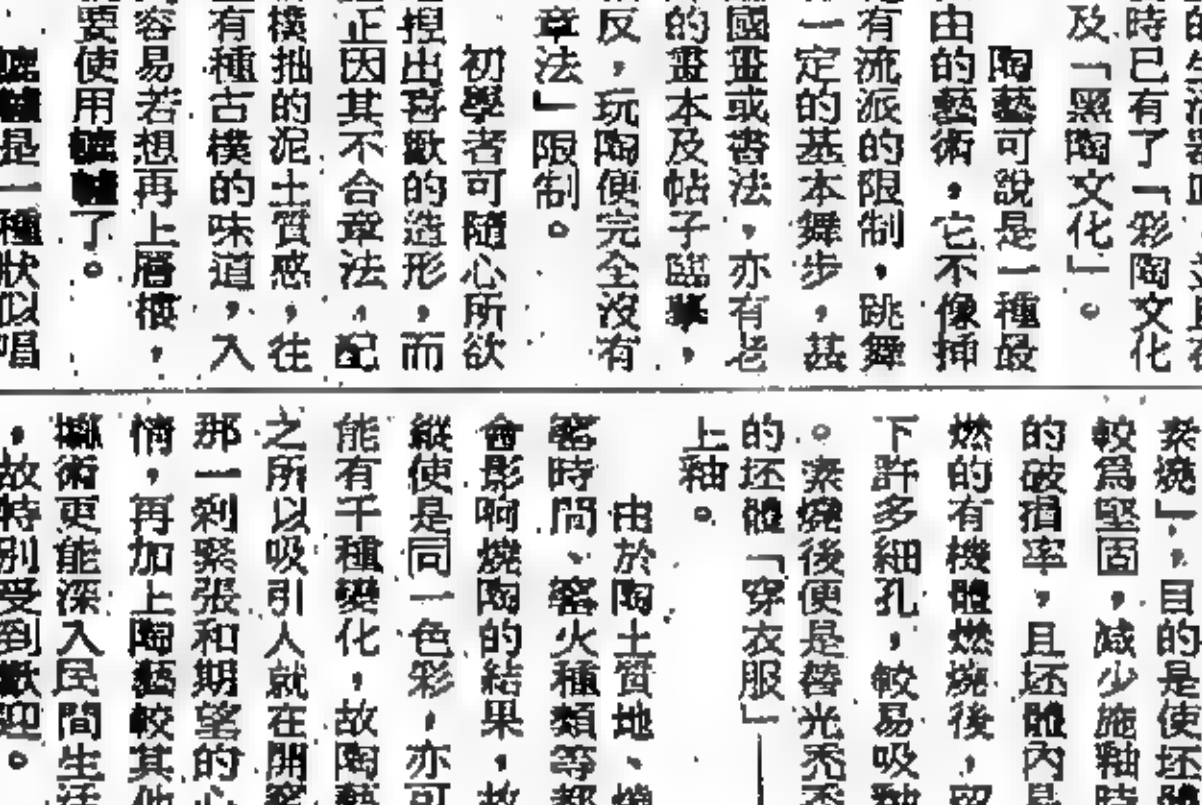 時已有了「彩陶文化
及「黑陶文化」。
陶藝可說是一種最
由的藝術，它不像插
有流派的限制，跳舞
一定的基本舞步，甚
國畫或書法，亦有老
的畫本及帖子臨摹，
反，玩陶便完全沒有
章法」限制。
初學者可隨心所欲
捏出喜歡的造形，而
正因其不合章法，配
樸拙的泥土質感，往
有種古樸的味道，入
容易若想再上層樓，
要使用轆轤了。
轆轤是一種狀似唱
素燒」，目的是使坯體
較為堅固，減少施釉時
的破損率，且坯體內
燃的有機體燃燒後，留
下許多細孔，較易吸釉
。素燒後便是替光禿禿
的坯體「穿衣服」—
上釉。
由於陶土質地、燒
窰時間、窰火種類等都
會影响燒陶的結果，故
縱使是同一色彩，亦可
能有千種變化，故陶藝
之所以吸引人就在開窰
那一刹緊張和期望的心
情，再加上陶藝較其他
藝術更能深入民間生活
，故特別受到歡迎。